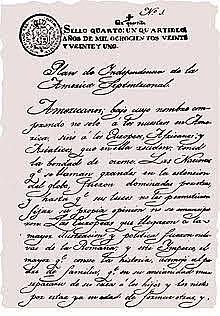 Nº 1
Un quartillo
SELLO QUARTO: UN QUARTILLO,
AÑOS DE MIL OCHOCIENTOS VEINTE
Y VEINTE Y UNO.
Plan de Independencia de la
America Septentrional.
Americanos, bajo cuyo nombre com-
prendo no solo á los nacidos en Ame-
rica, sino á los Europeos, Africanos y
Asiaticos, que en ella residen: tened
la bondad de oirme. Las Naciones
qe. se llaman grandes en la extension
del globo, fueron dominadas por otras
y hasta qe. sus luces no les permitieron
fijar su propia opinion, no se emancipa-
ron. Las Europeas que llegaron á la
mayor ilustracion y politica, fueron escla-
vas de la Romana, y este Imperio, el
mayor qe. conoce la historia, asemejó al pa-
dre de familias, qe. en su ancianidad mira
separarse de su casa á los hijos y los nietos
por estar ya en edad de formar otras, y